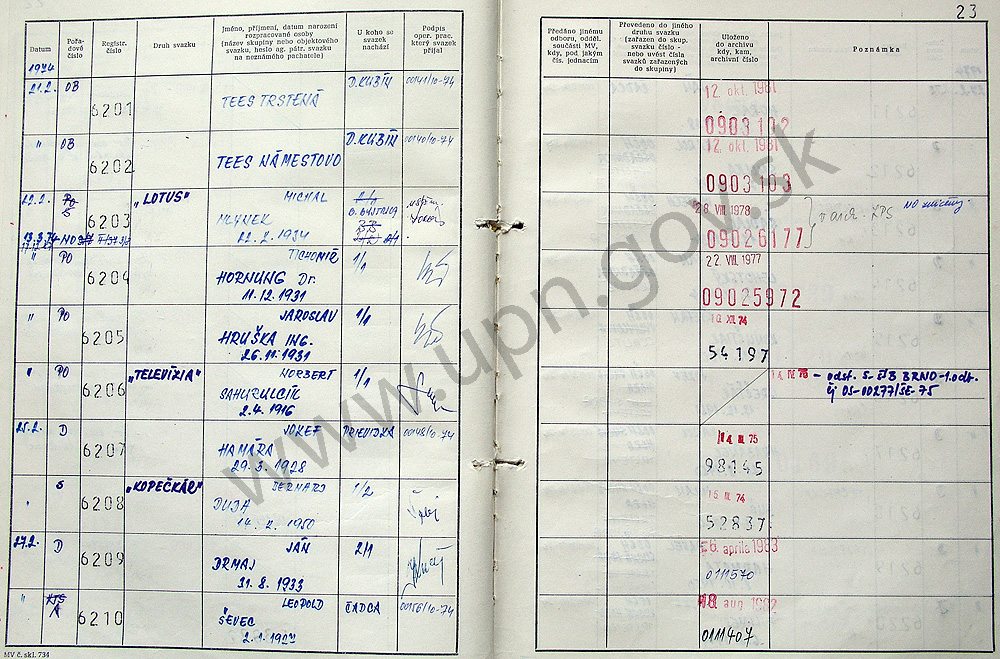 23
Datum
Pořa-
dové
číslo
Registr.
číslo
Druh svazku
Jméno, příjmení, datum narození
rozpracované osoby
(název skupiny nebo objektového
svazku, heslo ag. pátr. svazku
na neznámého pachatele)
U koho se
svazek
nachází
Podpis
oper. prac.
který svazek
přijal
Předáno jinému
odboru, odděl.
součásti MV,
kdy, pod. jakým
čís. jednacím
Převedeno do jiného
druhu svazku
(zařazen do skup.
svazku číslo -
nebo uvést čísla
svazků zařazených
do skupiny)
Uloženo
do archivu
kdy, kam,
archivní číslo
Poznámka
1974
21.2. OB 6201 TEES TRSTENÁ D. KUBÍN 00141/10-74 12. okt. 1981
0903102
" OB 6202 TEES NÁMESTOVO D. KUBÍN 00140/10-74 12. okt. 1981
0903103
22.2. PO "LOTUS" MICHAL 26. VIII. 1978
S 6203 MLYNEK B. BYSTRICA
22. 2. 1934 09026177
" PO 1/1 22. VIII. 1977
6204 HORNUNG Dr.
11. 12. 1931 09025972
" PO JAROSLAV 1/1 XII. 74
6205 HRUŠKA ING.
26. 11. 1931 54197
" PO "TELEVÍZIA" NORBERT 1/1 - odst. S-ŠtB BRNO-1.odb.
6206 čj OS-00277/SE-75
2. 4. 1916
25.2. D JOZEF PRIEVIDZA 00148/10-74 III. 75
6207 HAMÁRA
29. 3. 1928 98145
" S "KOPEČKÁR" BERNARD 1/2 III. 74
6208 DUDA
1950 52837
27.2. D JÁN 2/1 26. apríla 1983
6209 DRMAJ
31. 8. 1933 0111570
" A LEOPOLD ČADCA 00156/10-74 18. aug. 1982
6210 ŠEVEC
0111407
MV č. skl. 734
www.upn.gov.sk